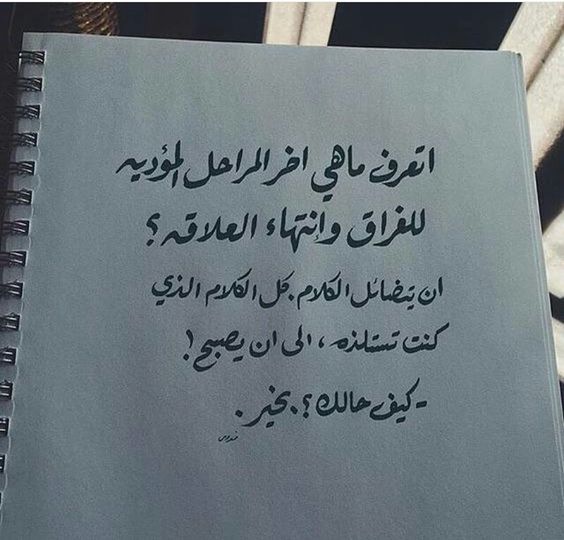 اتعرف ماهي اخر المراحل المؤديه
للفراق وإنتهاء العلاقه ؟
ان يتضائل الكلام . كل الكلام الذي
كنت تستلذه ، الى ان يصبح !
- كيف حالك ؟ . بخير .